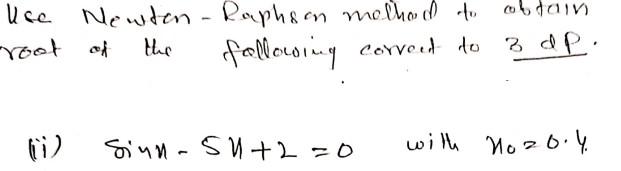 Use Newton-Raphson method to obtain
root of the following correct to 3 dp.
(ii) sinx - 5x + 2 = 0 with x₀ = 0.4